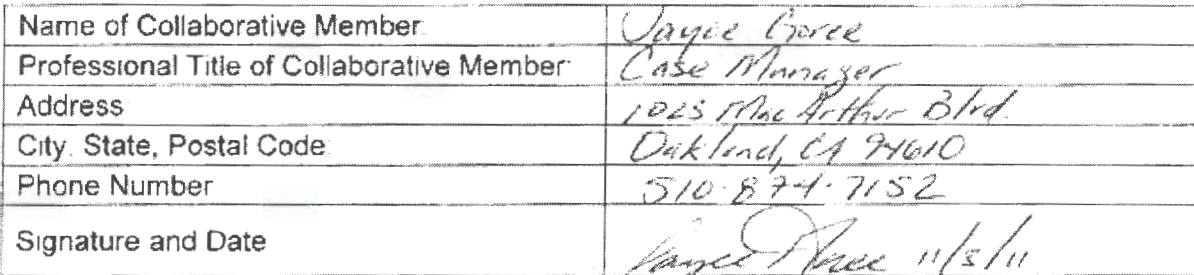 Name of Collaborative Member: Jayce Goree
Professional Title of Collaborative Member: Case Manager
Address 1025 MacArthur Blvd.
City, State, Postal Code: Oakland, CA 94610
Phone Number 510-874-7152
Signature and Date Jayce Goree 11/3/11